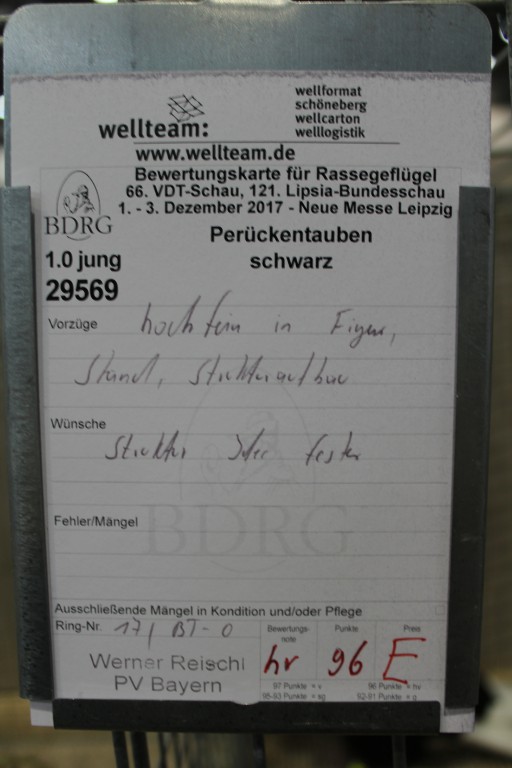 wellteam:
wellformat
schöneberg
wellcarton
welllogistik
www.wellteam.de
Bewertungskarte für Rassegeflügel
66. VDT-Schau, 121. Lipsia-Bundesschau
1. - 3. Dezember 2017 - Neue Messe Leipzig
BDRG
Perückentauben
schwarz
1.0 jung
29569
Vorzüge hochfein in Figur,
Stand, Strukturaufbau
Wünsche
Struktur fester
BDRG
Fehler/Mängel
Ausschließende Mängel in Kondition und/oder Pflege
Ring-Nr. 17/ BT-0
Werner Reischl
PV Bayern
Bewertungs-
note
hv
Punkte
96
Preis
E
97 Punkte = v 96 Punkte = hv
95-93 Punkte = sg 92-91 Punkte = g